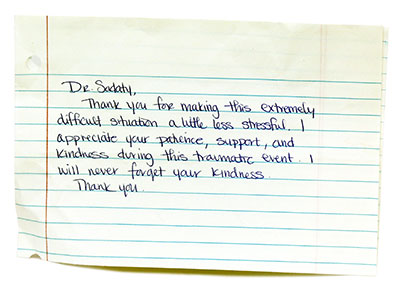 Dr. Sadaty,
Thank you for making this extremely
difficult situation a little less stressful. I
appreciate your patience, support, and
kindness during this traumatic event. I
will never forget your kindness.
Thank you.